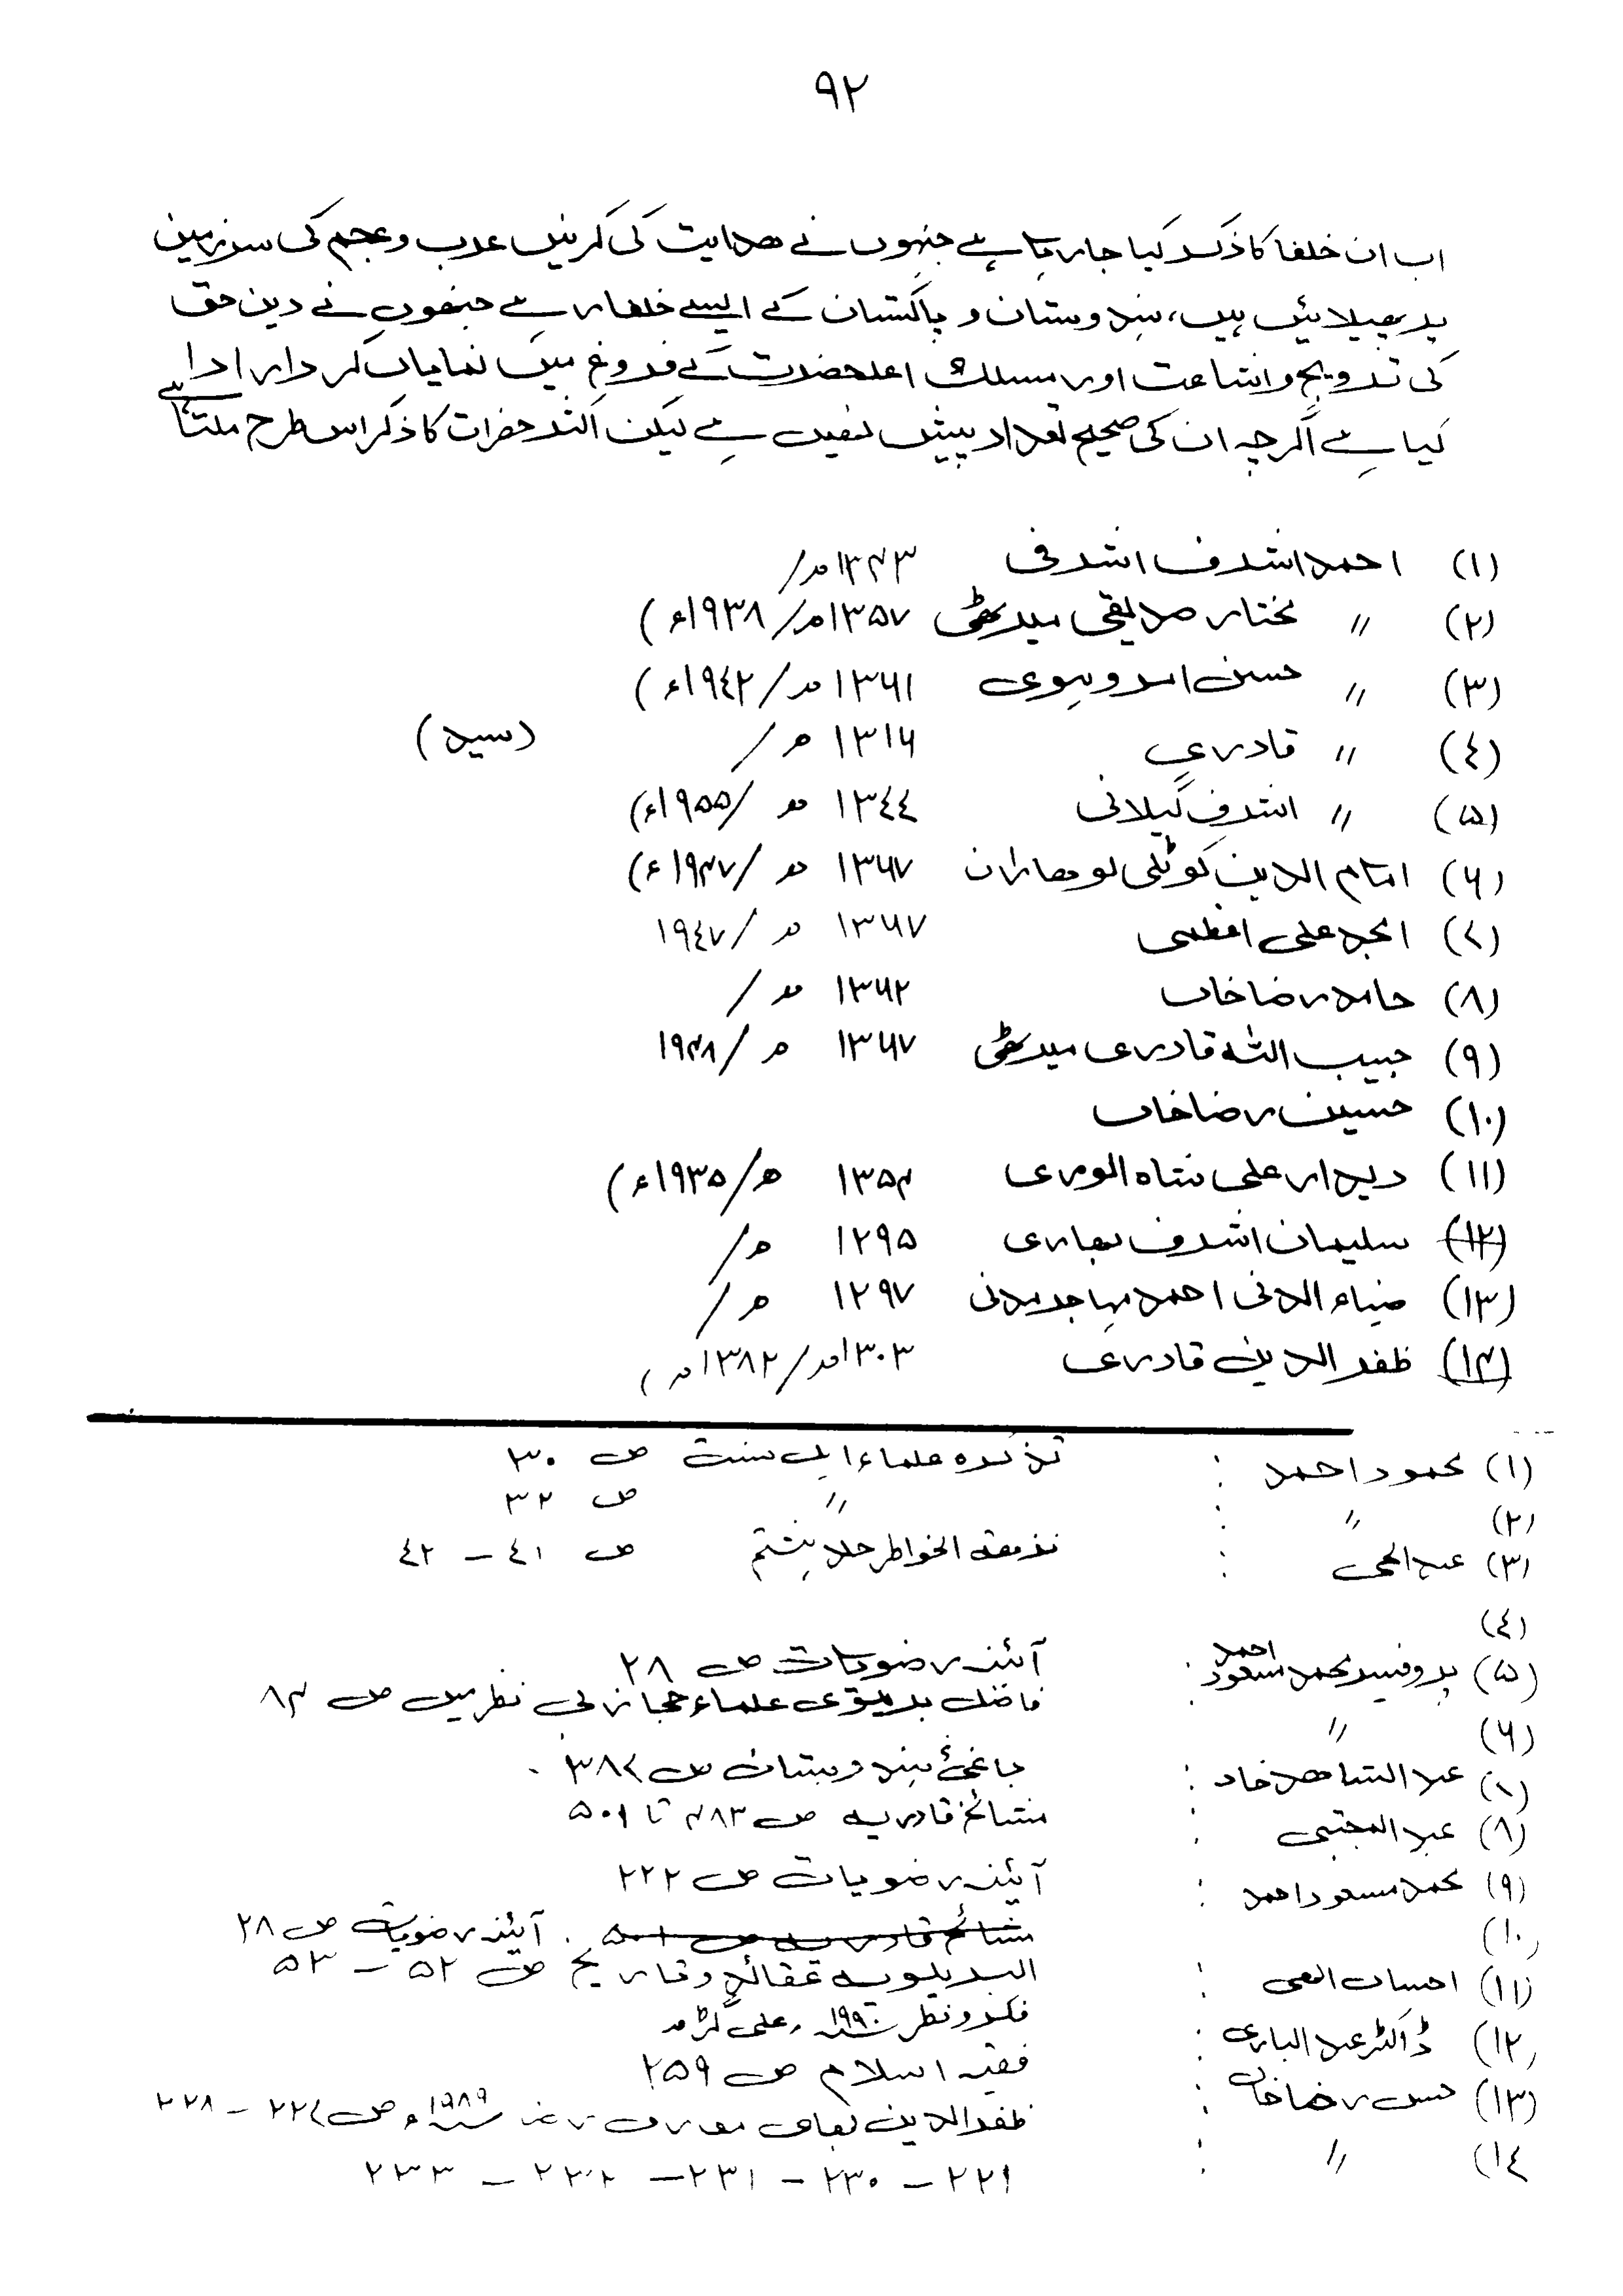 ۹۲
اب ان خلفا کا ذکر کیا جا رہا ہے جنہوں نے ھدایت کی کرنیں عرب و عجم کی سرزمین
پر پھیلائیں ہیں، ہندوستان و پاکستان کے ایسے خلفا رہے جنھوں نے دین حق
کی ترویج و اشاعت اور مسلک اعلحضرت کے فروغ میں نمایاں کردار ادا
کیا ہے اگرچہ ان کی صحیح تعداد پیش نھیں ہے لیکن اکثر حضرات کا ذکر اس طرح ملتا ہے
(۱) احمد اشرف اشرفی ۱۳۴۳ھ/
(۲)〃 مختار صدیقی میرٹھی ۱۳۵۷ھ/ ۱۹۳۸ء)
(۳) 〃 حسن امروہوی ۱۳۶۱ھ/ ۱۹٤۲ء)
(٤) 〃 قادری ۱۳۱۶ھ/ (سید)
(۵) 〃 اشرف گیلانی ۱۳٤٤ھ/ ۱۹۵۵ء)
(۶) امام الدین کوٹلی لوھاران ۱۳۶۷ھ/ ۱۹۴۷ء)
(۷) امجد علی اعظمی ۱۳۶۷ھ/ ۱۹٤۷
(۸) حامد رضا خاں ۱۳۶۲ھ/
(۹) حبیب اللہ قادری میرٹھی ۱۳۶۷ھ/ ۱۹۴۸
(۱۰) حسین رضا خاں
(۱۱) دیدار علی شاہ الوری ۱۳۵۴ھ/ ۱۹۳۵ء)
(۱۲) سلیمان اشرف بھاری ۱۲۹۵ھ/
(۱۳) ضیاء الدنی احمد مہاجر مدنی ۱۲۹۷ھ/
(۱۴) ظفر الدین قادری ۱۳۰۳ھ/ ۱۳۸۲ھ)
(۱) محمود احمد : تذکرہ علماء اہل سنت ص ۳۰
(۲) 〃 : 〃 ص ۳۲
(۳) عبد الحی : نزھتہ الخواطر جلد ہشتم ص ٤۱ – ٤۲
(٤)
(۵) پروفیسر محمد مسعود احمد : آئنہ رضویات ص ۲۸
(۶) 〃 فاضل بریلوی علماء حجاز کی نظر میں ص ۸۴
(۷) عبد الشاھد خاں : باغئ ہندوستان ص ۳۸۷
(۸) عبد المجتبی : مشائخ قادریہ ص ۴۸۳ تا ۵۰۱
(۹) محمد مسعود احمد : آئینہ رضویات ص ۲۲۲
(۱۰) مشائخ قادریہ ص ۵۰۱ . آئنہ رضویات ص ۲۸
(۱۱) احسان الھی : البریلویہ عقائد و تاریخ ص ۵۲ – ۵۳
(۱۲) ڈاکٹر عبد الباری : فکر و نظر ۱۹۹۰ علی گڑھ
(۱۳) حسن رضا خاں : فقیہ اسلام ص ۲۵۹
۱٤) 〃 : ظفر الدین بھاری معارف ۱۹۸۹ء ص ۲۲۷ – ۲۲۸
۲۲۹ – ۲۳۰ – ۲۳۱ – ۲۳۲ – ۲۳۳